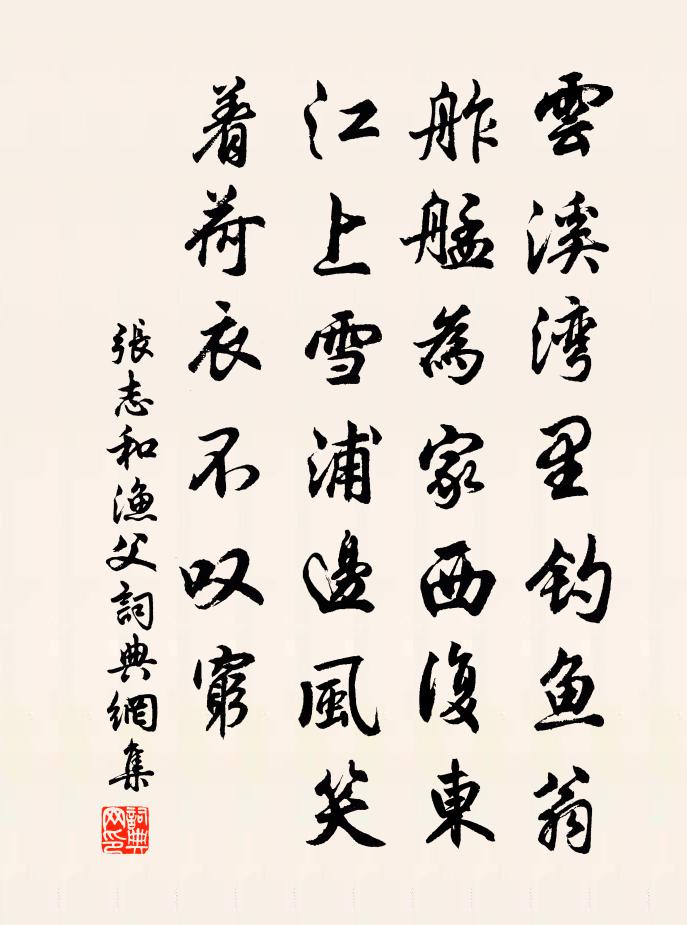 雲溪湾里钓鱼翁
舴艋為家西復東
江上雪浦邊風笑
着荷衣不叹窮
張志和漁父詞典網集
詞典网印